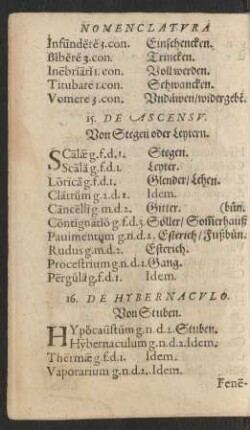 NOMENCLATVRA
Infūndĕrĕ 3.con. Einschencken.
Bĭbĕrĕ 3.con. Trincken.
Inēbrĭārī 1.con. Voll werden.
Titubare 1.con. Schwancken.
Vomere 3.con. Vndäwen/widergebē.
15. DE ASCENSV.
Von Stegen oder Leytern.
SCālæ g.f.d.1. Stegen.
Scālă g.f.d.1. Leyter.
Lōrīcă g.f.d.1. Glender/Lehen.
Clātrŭm g.2.d.2. Idem.
Cāncēllī g.m.d.2. Gitter. (bün.
Cōntignatĭō g.f.d.3. Söller/Som̄erhauß
Pauimentum g.n.d.2. Esterich/Fußbün.
Rudus g.m.d.2. Esterich.
Procestrium g.n.d.2. Gang.
Pērgŭlă g.f.d.1. Idem.
16. DE HYBERNACVLO.
Von Stuben.
HYpŏcaūstŭm g.n.d.2. Stuben.
Hybernaculum g.n.d.2. Idem.
Thērmæ g.f.d.1. Idem.
Vaporarium g.n.d.2. Idem.
Fenē-